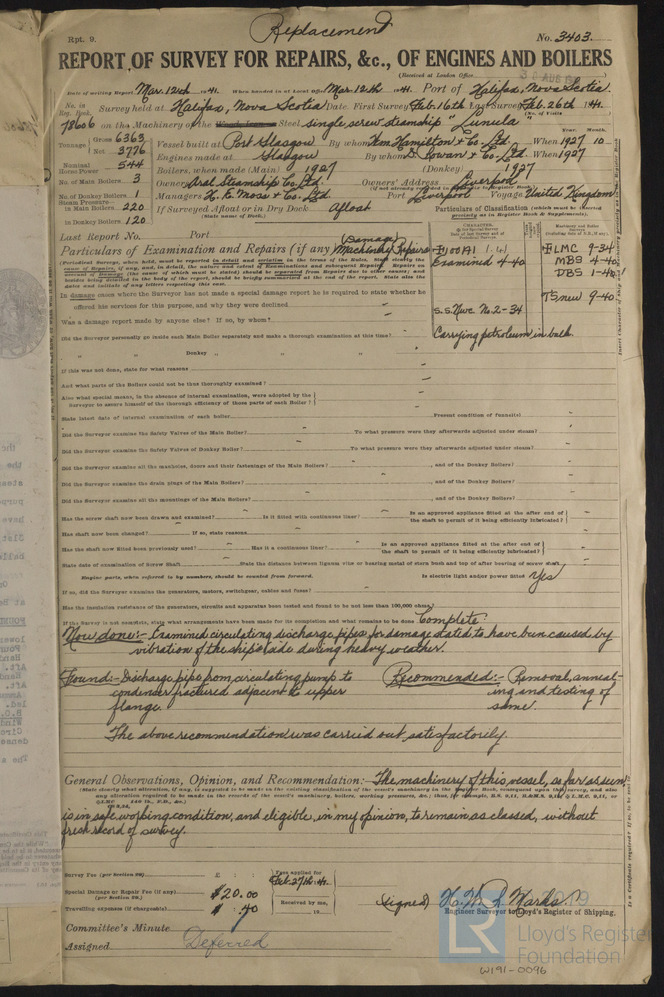 Replacement
Rpt. 9.
No. 3403.
REPORT OF SURVEY FOR REPAIRS, &c., OF ENGINES AND BOILERS
(Received at London Office
Date of writing Report Mar. 12th 1941. When handed in at Local Office Mar. 12th 1941. Port of Halifax, Nova Scotia.
No. in Reg. Book. Survey held at Halifax, Nova Scotia Date First Survey Feb. 16th Last Survey Feb. 26th 1941.
(No. of Visits
78606 on the Machinery of the Steel single screw steamship "Lunula"
Tonnage Gross 6363 Net 3776
Vessel built at Port Glasgow By whom Wm. Hamilton & Co Ltd. When 1927 10
Year. Month.
Engines made at Glasgow By whom D. Rowan & Co. Ltd. When 1927
Nominal Horse Power 544
Boilers, when made (Main) 1927 (Donkey) 1927
No. of Main Boilers 3
Owners Oral Steamship Co. Ltd. Owners' Address Liverpool
(If not already recorded in Register Book)
No. of Donkey Boilers 1
Managers H. E. Moss & Co. Ltd Port Liverpool Voyage United Kingdom
Steam Pressure in Main Boilers 220
in Donkey Boilers 120
If Surveyed Afloat or in Dry Dock Afloat
(State name of Dock.)
Particulars of Classification (which must be inserted precisely as in Register Book & Supplements).
Last Report No. Port
Particulars of Examination and Repairs (if any) (Damage) Machinery Repairs
100A1 1.41
Examined 4-40
S.S. No. 2-34
Carrying petroleum in bulk
LMC 9-34
MBS 4-40
DBS 1-40
TS new 9-40
In damage cases where the Surveyor has not made a special damage report he is required to state whether he
offered his services for this purpose, and why they were declined
Was a damage report made by anyone else? If so, by whom?
Did the Surveyor personally go inside each Main Boiler separately and make a thorough examination at this time?
" " Donkey " " "
If this was not done, state for what reasons
And what parts of the Boilers could not be thus thoroughly examined?
Also what special means, in the absence of internal examination, were adopted by the
Surveyor to assure himself of the thorough efficiency of those parts of each Boiler?
State latest date of internal examination of each boiler Present condition of funnel(s)
Did the Surveyor examine the Safety Valves of the Main Boiler? To what pressure were they afterwards adjusted under steam?
Did the Surveyor examine the Safety Valves of Donkey Boiler? To what pressure were they afterwards adjusted under steam?
Did the Surveyor examine all the manholes, doors and their fastenings of the Main Boilers? , and of the Donkey Boilers?
Did the Surveyor examine the drain plugs of the Main Boilers? , and of the Donkey Boilers?
Did the Surveyor examine all the mountings of the Main Boilers? , and of the Donkey Boilers?
Has the screw shaft now been drawn and examined? Is it fitted with continuous liner? Is an approved appliance fitted at the after end of the shaft to permit of it being efficiently lubricated?
Has shaft now been changed? If so, state reasons
Has the shaft now fitted been previously used? Has it a continuous liner? Is an approved appliance fitted at the after end of the shaft to permit of it being efficiently lubricated?
State date of examination of Screw Shaft State the distance between lignum vitæ or bearing metal of stern bush and top of after bearing of screw shaft
Engine parts, when referred to by numbers, should be counted from forward. Is electric light and/or power fitted Yes
If so, did the Surveyor examine the generators, motors, switchgear, cables and fuses?
Has the insulation resistance of the generators, circuits and apparatus been tested and found to be not less than 100,000 ohms?
If the Survey is not complete, state what arrangements have been made for its completion and what remains to be done Complete.
Now done:- Examined circulating discharge pipes for damage stated to have been caused by
vibration of the ship's side during heavy weather.
Found:- Discharge pipe from circulating pump to
condenser fractured adjacent to upper
flange.
Recommended:- Removal, anneal-
ing and testing of
same.
The above recommendation was carried out satisfactorily.
General Observations, Opinion, and Recommendation:- The machinery of this vessel, so far as seen
is in safe working condition, and eligible, in my opinion, to remain as classed, without
fresh record of survey.
Survey Fee (per Section 29) £ : :
Fees applied for
Feb. 27th 41.
Special Damage or Repair Fee (if any) $ 20.00
(per Section 29.)
Received by me,
19
Travelling expenses (if chargeable) $ .40
(Signed) H. W. R. Marks.
Engineer Surveyor to Lloyd's Register of Shipping.
Committee's Minute
Assigned Deferred
LR
2019
Lloyd's Register
Foundation
W191-0096